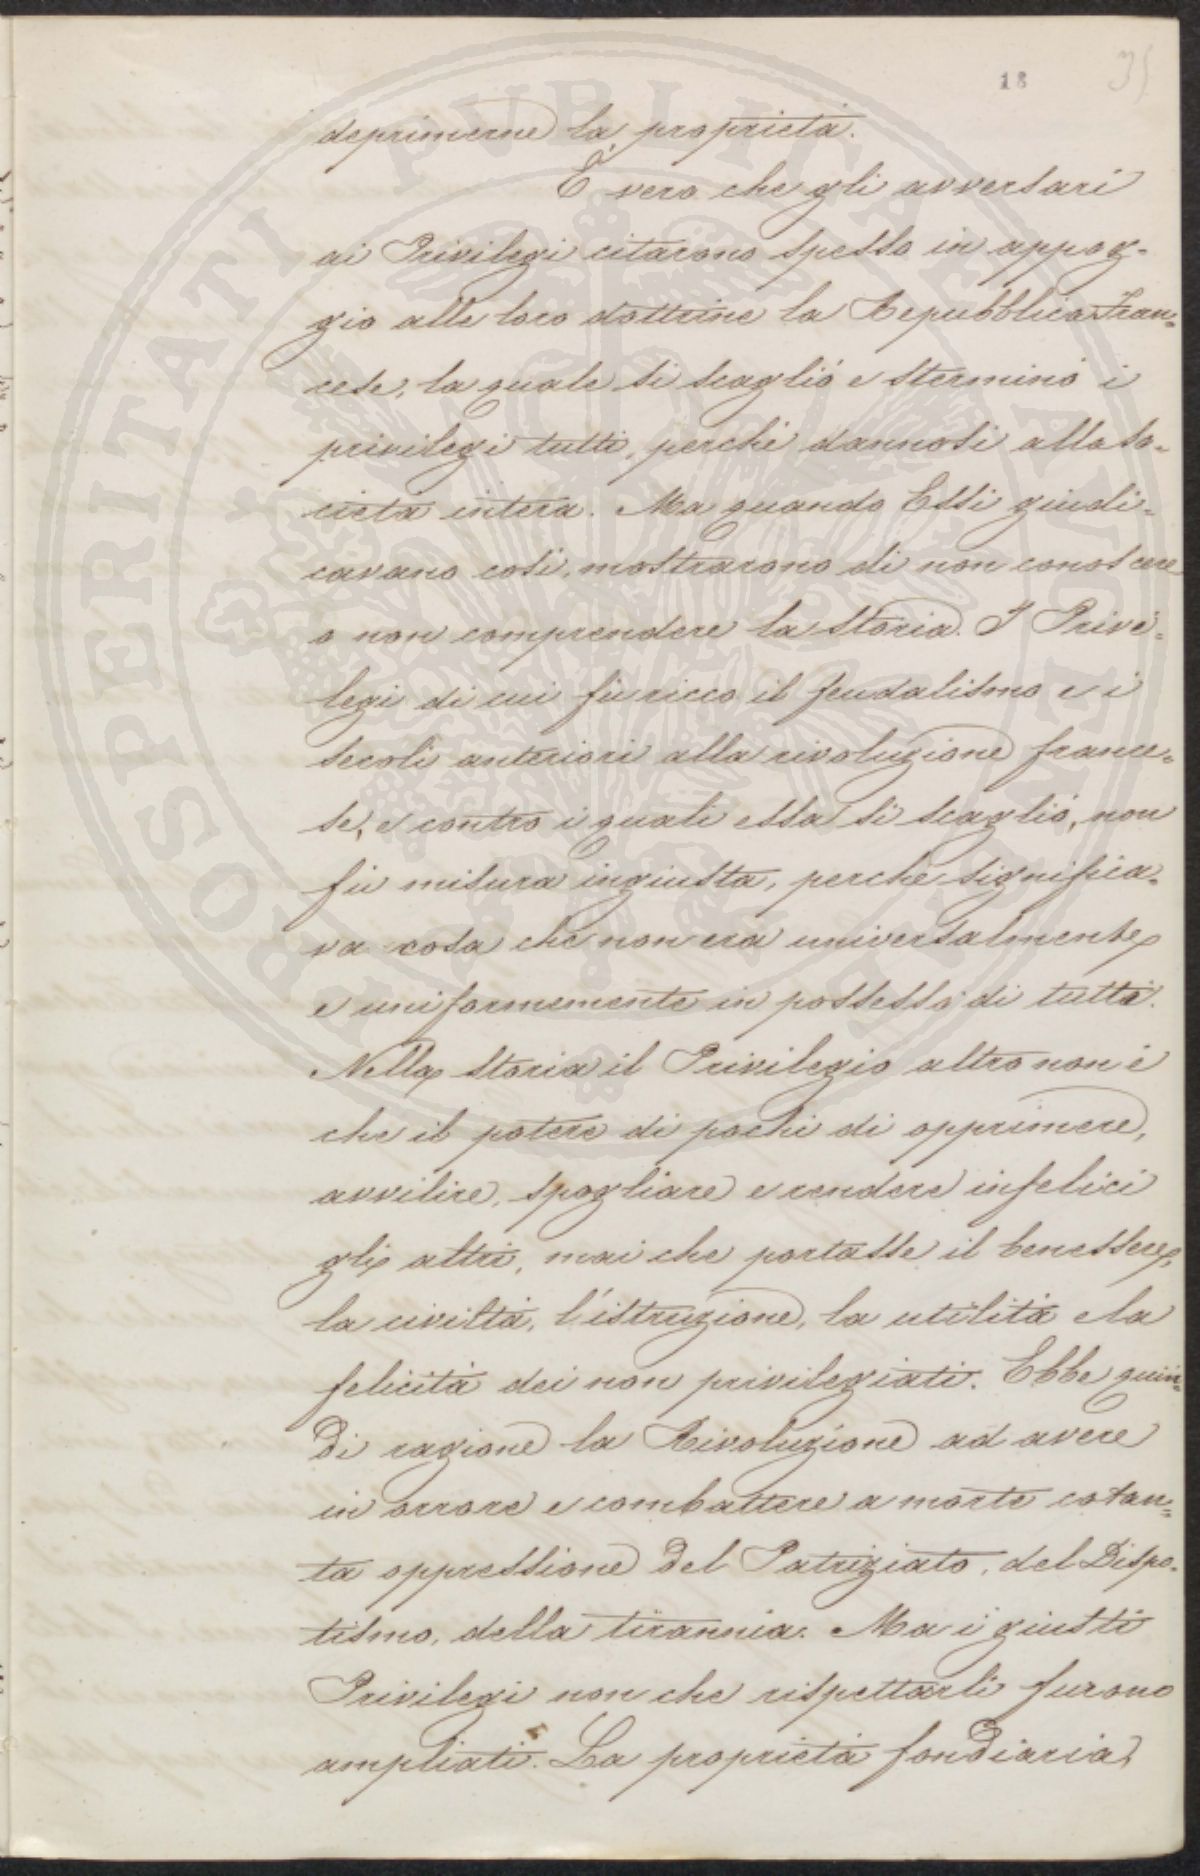 18
35
deprimerne la proprietà.
È vero che gli avversari
ai Privilegi citarono spesso in appog-
gio alle loro dottrine la Repubblica Fran=
cese, la quale si scagliò e sterminò i
privilegi tutti, perchè dannosi alla so-
cietà intera. Ma quando Essi giudi-
cavano così, mostrarono di non conoscere
o non comprendere la storia. I Privi-
legi di cui fù ricco il feudalismo e i
secoli anteriori alla rivoluzione france=
se, e contro i quali essa si scagliò, non
fù misura ingiusta, perchè significa-
va cosa che non era universalmente
e uniformemente in possesso di tutti.
Nella storia il Privilegio altro non è
che il potere di pochi di opprimere,
avvilire, spogliare e rendere infelici
gli altri, mai che portasse il benessere,
la civiltà, l'istruzione, la utilità e la
felicità dei non privilegiati. Ebbe quin=
di ragione la Rivoluzione ad avere
in orrore e combattere a morte cotan=
ta oppressione del Patriziato, del Dispo-
tismo, della tirannia. Ma i giusti
Privilegi non che rispettarli furono
ampliati. La proprietà fondiaria,
PROSPERITATI PVBLICAE AVGENDAE